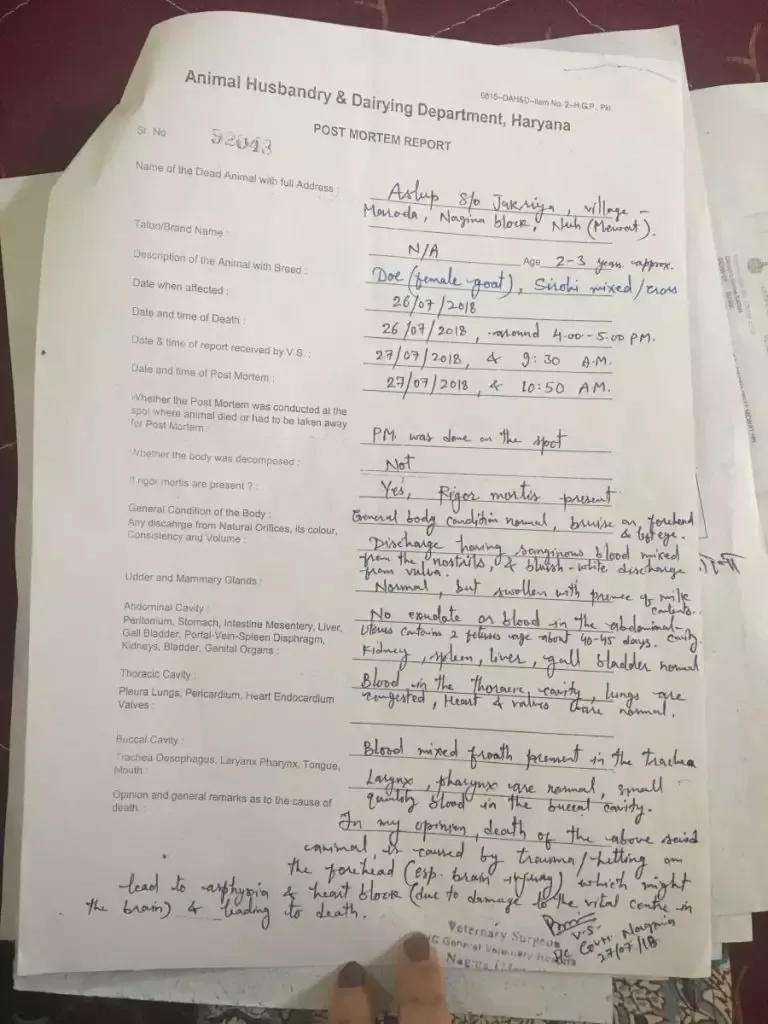 6815-DAH&D-Item No. 2-H.G.P., Pkl.
Animal Husbandry & Dairying Department, Haryana
POST MORTEM REPORT
Sr. No. 92043
Name of the Dead Animal with full Address : Aslup S/o Jakriya, village -
Maroda, Nagina block, Nuh (Mewat).
Tatoo/Brand Name : N/A Age 2-3 years approx.
Description of the Animal with Breed : Doe (female goat), Sirohi mixed/cross
Date when affected : 26/07/2018
Date and time of Death : 26/07/2018, around 4.00-5.00 PM.
Date & time of report received by V.S. : 27/07/2018, & 9:30 A.M.
Date and time of Post Mortem : 27/07/2018, & 10:50 AM.
Whether the Post Mortem was conducted at the
spot where animal died or had to be taken away
for Post Mortem : PM was done on the spot
Whether the body was decomposed : Not
If rigor mortis are present ? : Yes, Rigor mortis present
General Condition of the Body : General body condition normal, bruise on forehead
& left eye.
Any discahrge from Natural Orifices, its colour,
Consistency and Volume : Discharge having sanginous blood mixed
from the nostrils, & bluish-white discharge
from vulva.
Udder and Mammary Glands : Normal, but swollen with presence of milk
contents.
Abdominal Cavity : No exudate or blood in the abdominal
cavity.
Peritonium, Stomach, Intestine Mesentery, Liver,
Gall Bladder, Portal-Vein-Spleen Diaphragm,
Kidneys, Bladder, Genital Organs : Uterus contains 2 fetuses age about 40-45 days.
Kidney, spleen, liver, gall bladder normal
Thoracic Cavity : Blood in the thoracic cavity, lungs are
Pleura Lungs, Pericardium, Heart Endocardium
Valves : congested, Heart & valves are normal.
Buccal Cavity : Blood mixed froath present in the trachea
Trachea Oesophagus, Laryanx Pharynx, Tongue,
Mouth : Larynx, pharynx are normal, small
quantity blood in the buccal cavity.
Opinion and general remarks as to the cause of
death. : In my opinion, death of the above said
animal, is caused by trauma/hetting on
the forehead (esp. brain injury) which might
lead to asphyxia & heart block (due to damage to the vital centre in
the brain) & leading to death.
V.S.
Govt. Nagina
27/07/18
Veternary Surgeon
General Veterinary
Nagina